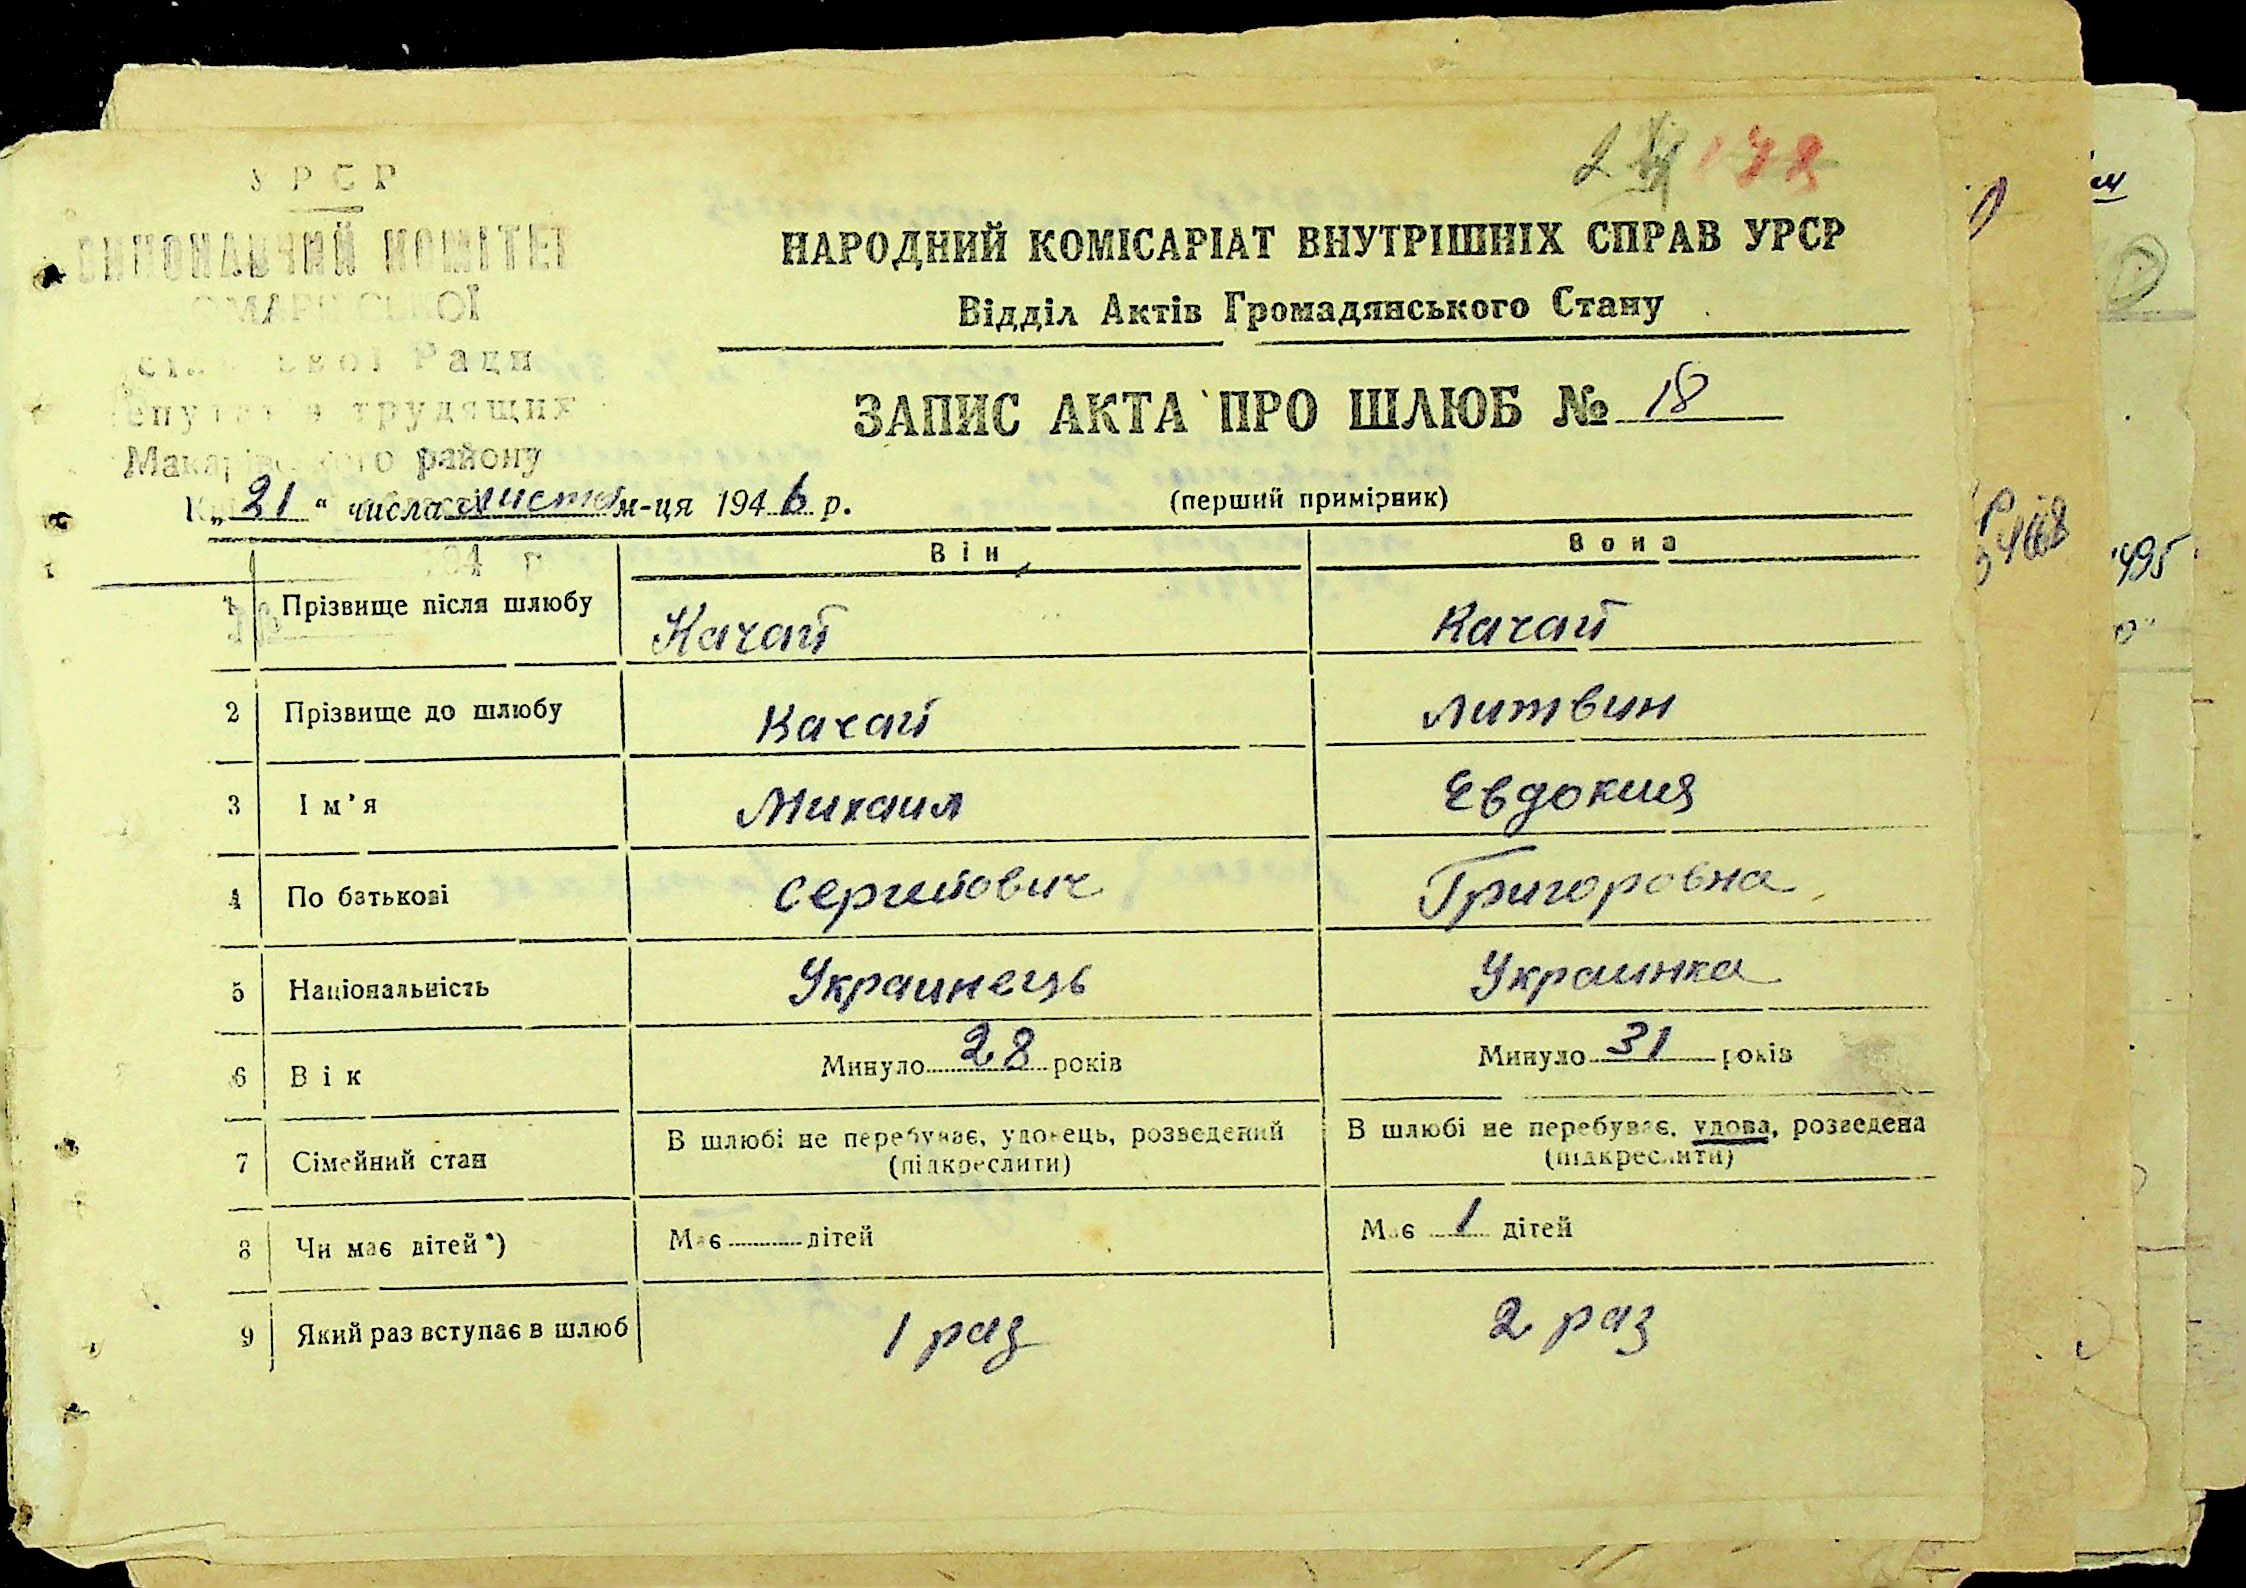 УРСР
ВИКОНАВЧИЙ КОМІТЕТ
Ради
трудящих
Макарівського району
НАРОДНИЙ КОМІСАРІАТ ВНУТРІШНІХ СПРАВ УРСР
Відділ Актів Громадянського Стану
ЗАПИС АКТА ПРО ШЛЮБ № 18
„21“ числа листо м-ця 1946 р.
(перший примірник)
194 р
Він
Вона
1 Прізвище після шлюбу Качай Качай
2 Прізвище до шлюбу Качай Литвин
3 Ім'я Михаил Евдокия
4 По батькові Сергийович Григоровна
5 Національність Украинець Украинка
6 Вік Минуло 28 років Минуло 31 років
7 Сімейний стан В шлюбі не перебуває, удовець, розведений (підкреслити) В шлюбі не перебуває, удова, розведена (підкреслити)
8 Чи має дітей*) Має дітей Має 1 дітей
9 Який раз вступає в шлюб 1 раз 2 раз